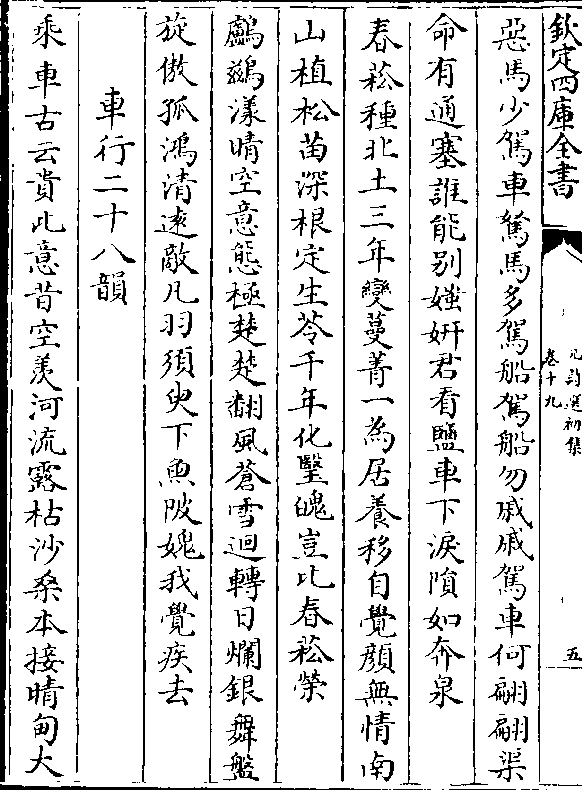 欽定四庫全書
元詩選初集
卷十九
五
惡馬少駕車駑馬多駕船駕船勿戚戚駕車何翩翩渠
命有通塞誰能别媸妍君看鹽車下淚隕如奔泉
春菘種北土三年變蔓菁一為居養移自覺顔無情南
山植松苗深根定生苓千年化瑿魄豈比春菘榮
鸕鷀漾晴空意態極楚楚翻風蒼雪迴轉日爛銀舞盤
旋傲孤鴻清遠敵凡羽須臾下魚陂媿我覺疾去
車行二十八韻
乘車古云貴此意昔空羨河流露枯沙桑本接晴甸大